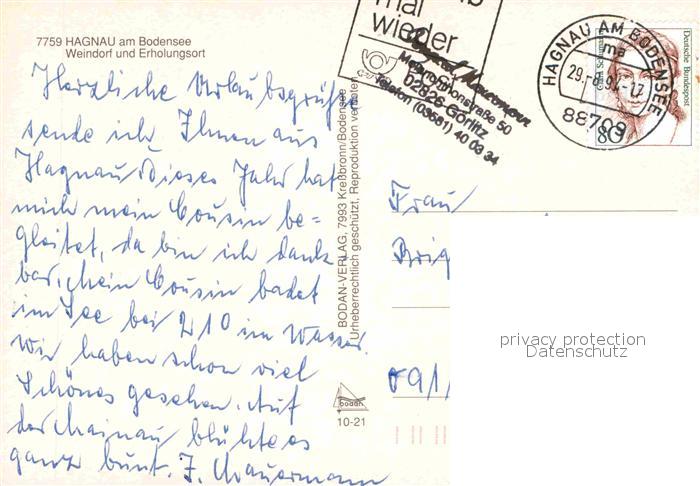 7759 HAGNAU am Bodensee
Weindorf und Erholungsort
Herzliche Urlaubsgrüße
sende ich Ihnen aus
Hagnau. Dieses Jahr hat
mich mein Cousin be=
gleitet, da bin ich dank
bar. Mein Cousin badet
im See bei 21° im Wasser.
Wir haben schon viel
Schönes gesehen. Auf
der Mainau blühte es
ganz bunt. J. Mauermann
BODAN-VERLAG, 7993 Kreßbronn/Bodensee
Urheberrechtlich geschützt, Reproduktion verboten
bodan
10-21
mal
wieder
Melanchthonstraße 50
02826 Görlitz
Telefon (03581) 40 09 34
HAGNAU AM BODENSEE
88709
Deutsche Bundespost
80
Frau
Brig
privacy protection
Datenschutz